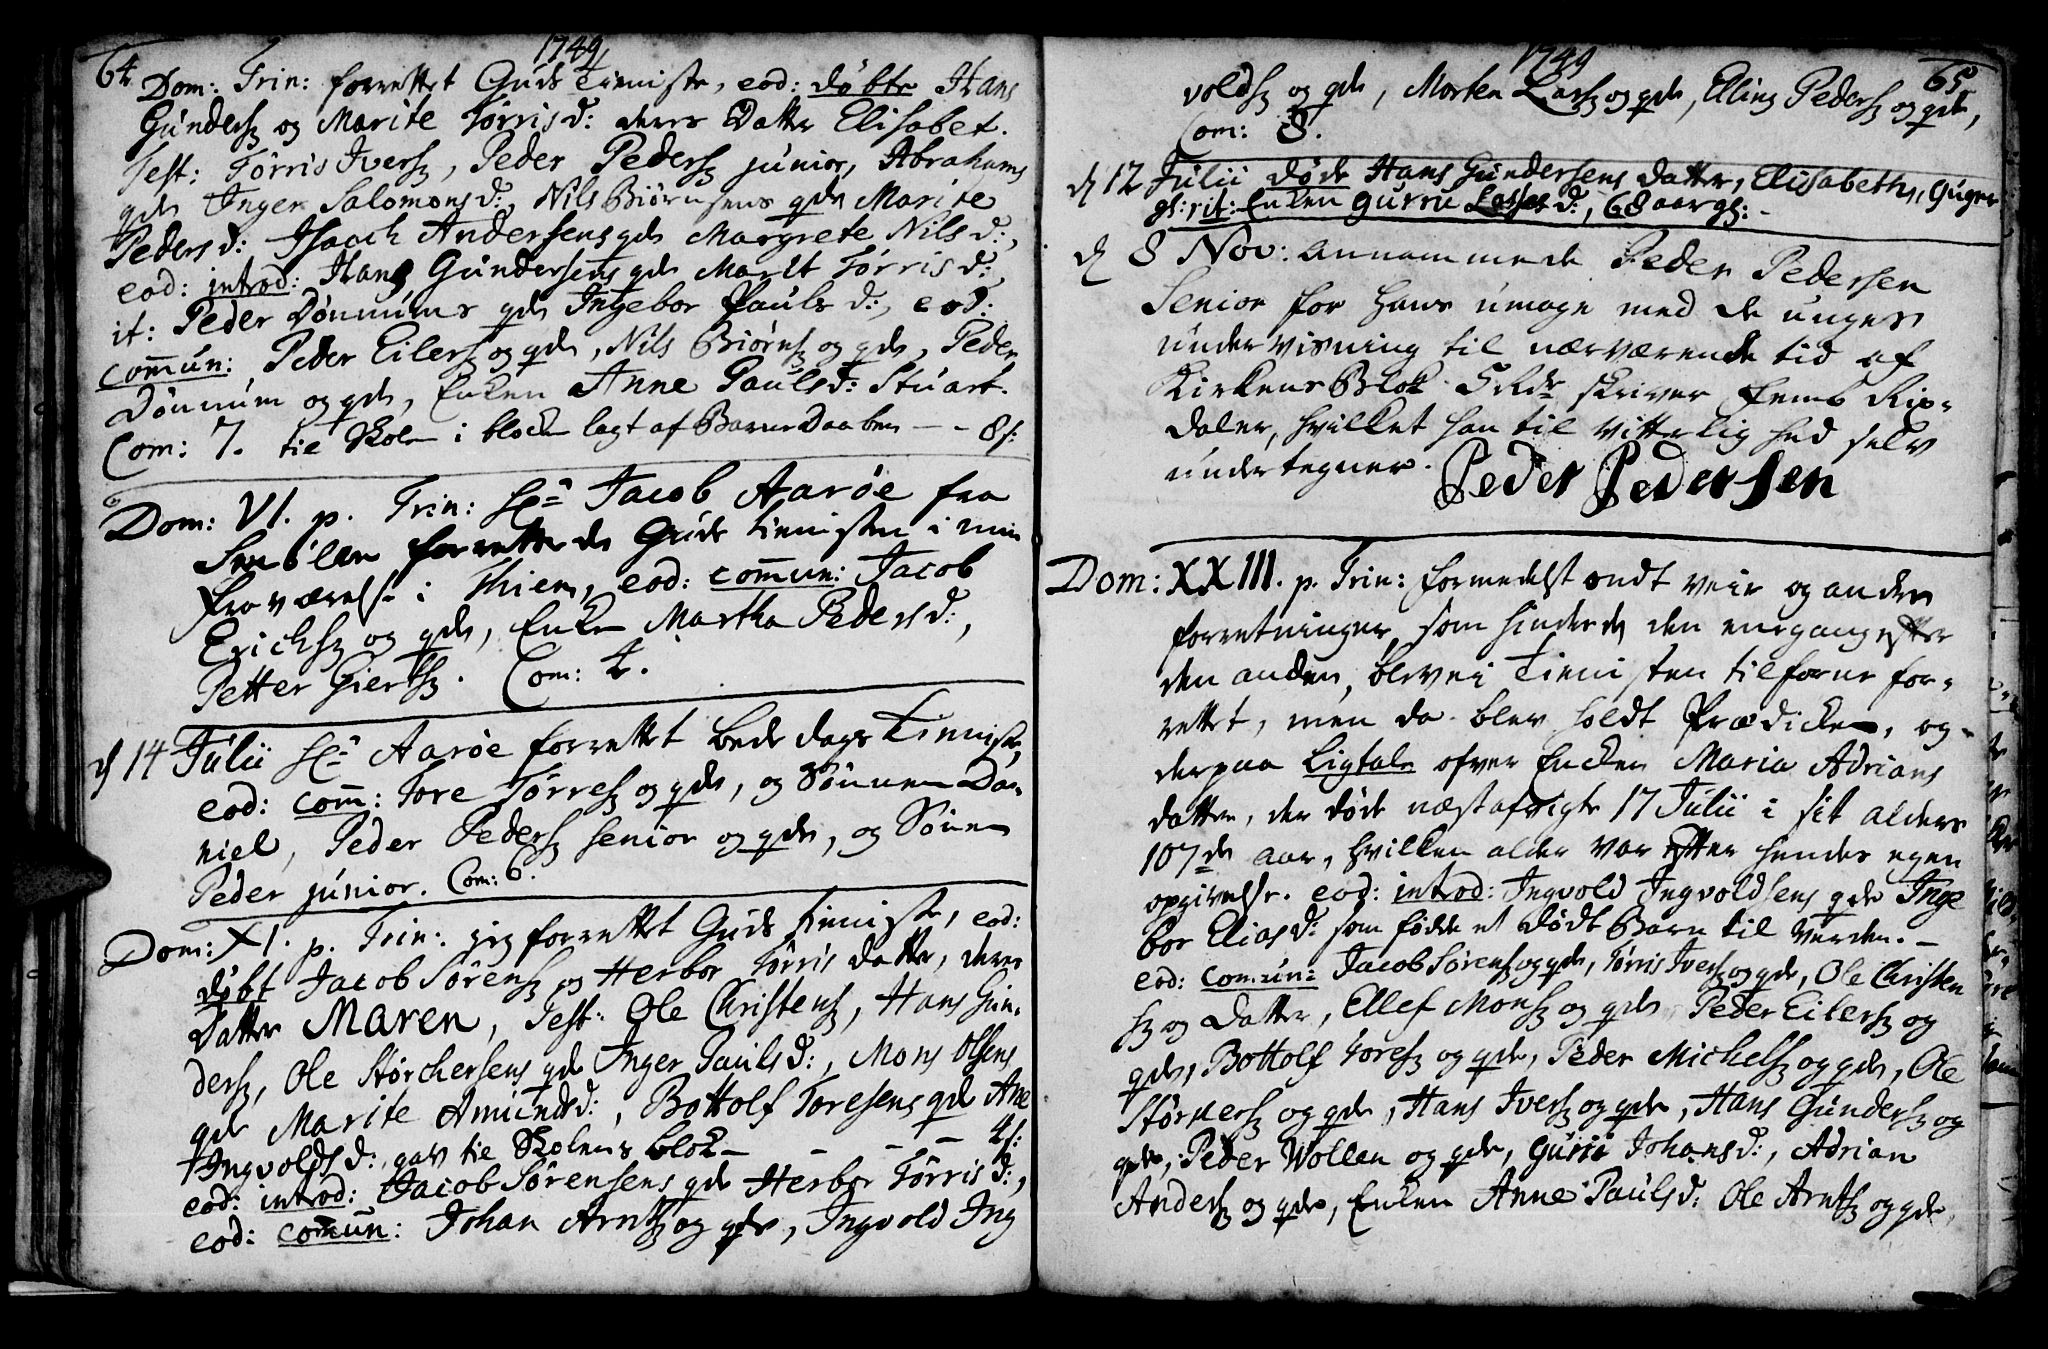 64 1749
Dom: Trin: forrettet Guds Tieniste, eod: döbte Hans
Gunders: og Marite Törrisd: deres Datter Elisabet.
Test: Törris Ivers:, Peder Peders: junior, Abrahams
qde Inger Salomonsd:, Nils Biörnsens qde Marite
Pedersd: Isaach Andersens qde Margrete Nilsd:,
eod: introd: Hans Gundersens qde Marit Törrisd:,
it: Peder Dönnums qde Ingebor Paulsd:, eod:
comun: Peder Eilers: og qde, Nils Biörns: og qde, Peder
Dönnum og qde, Enken Anne Paulsd: Stuart.
Com: 7. til Skolen i blocken lagt af Barne Daaben - - 8 s:
Dom: VI. p. Trin: Hr Jacob Aaröe fra
Smölen forrettede Guds tienisten i min
fraværelse i Thiem, eod: comun: Jacob
Erichs: og qde, Enken Martha Pedersd:,
Petter Gierts:. Com: 4.
d 14 Julii Hr Aaröe forrettet Bede dags Tieniste,
eod: com: Tore Törres: og qde, og Sönnen Da-
niel, Peder Peders: senior og qde, og Sönen
Peder junior. Com: 6.
Dom: XI. p. Trin: jeg forrettet Guds tieniste, eod:
döbt Jacob Sörens: og Herbor Törris datter, deres
Datter Maren, Test: Ole Christens:, Hans Gun-
ders:, Ole Störchersens qde Inger Paulsd:, Mons Olsens
qde Marite Amundsd:, Bottolf Toresens qde Ane
Ingvoldsd:, gav til Skolens blok - - - 4 s:
eod: introd: Jacob Sörensens qde Herbor Törrisd:,
eod: comun: Johan Arnts: og qde, Ingvold Ing
1749 65
volds: og qde, Morten Lars: og qde, Elling Peders: og qde,
Com: 8.
d 12 Julii döde Hans Gundersens datter, Elisabeth,
gl: rit: Enken Gurru d:, 68 aar gl: -
d 8 Nov: annammede Peder Pedersen
Senior for hans umage med de unges
undervisning til nærværende tid af
Kirkens Blok 5 Rdr skriver Femb Rix-
daler, hvilket han til vitterlighed selv
undertegner. Peder Pedersen
Dom: XXIII. p. Trin: formedelst ondt veir og anden
forretninger som hinderede den eene gang efter
den anden, blev ei Tienisten tilforne for-
rettet, men da blev holdt Prædicken, og
derpaa Ligtale ofver Encken Maria Adrians
datter, der döde næstafvigte 17 Julii i sit alders
107de aar, hvilken alder var efter hendes egen
opgivelse. eod: introd: Ingvold Ingvoldsens qde Inge
bor Eliasd: som födde et dödt Barn til Verden. -
eod: comun: Jacob Sörens: og qde, Törris Ivers: og qde, Ole Christen
s: og Datter, Ellef Mons: og qde Peder Eilers: og
qde, Bottolf Tores: og qde, Peder Michels: og qde, Ole
Störkers: og qde, Hans Ivers: og qde, Hans Gunders: og
qde, Peder Wollen og qde, Guri Johansd:, Adrian
Anders: og qde, Enken Anne Paulsd: Ole Arnts: og qde,